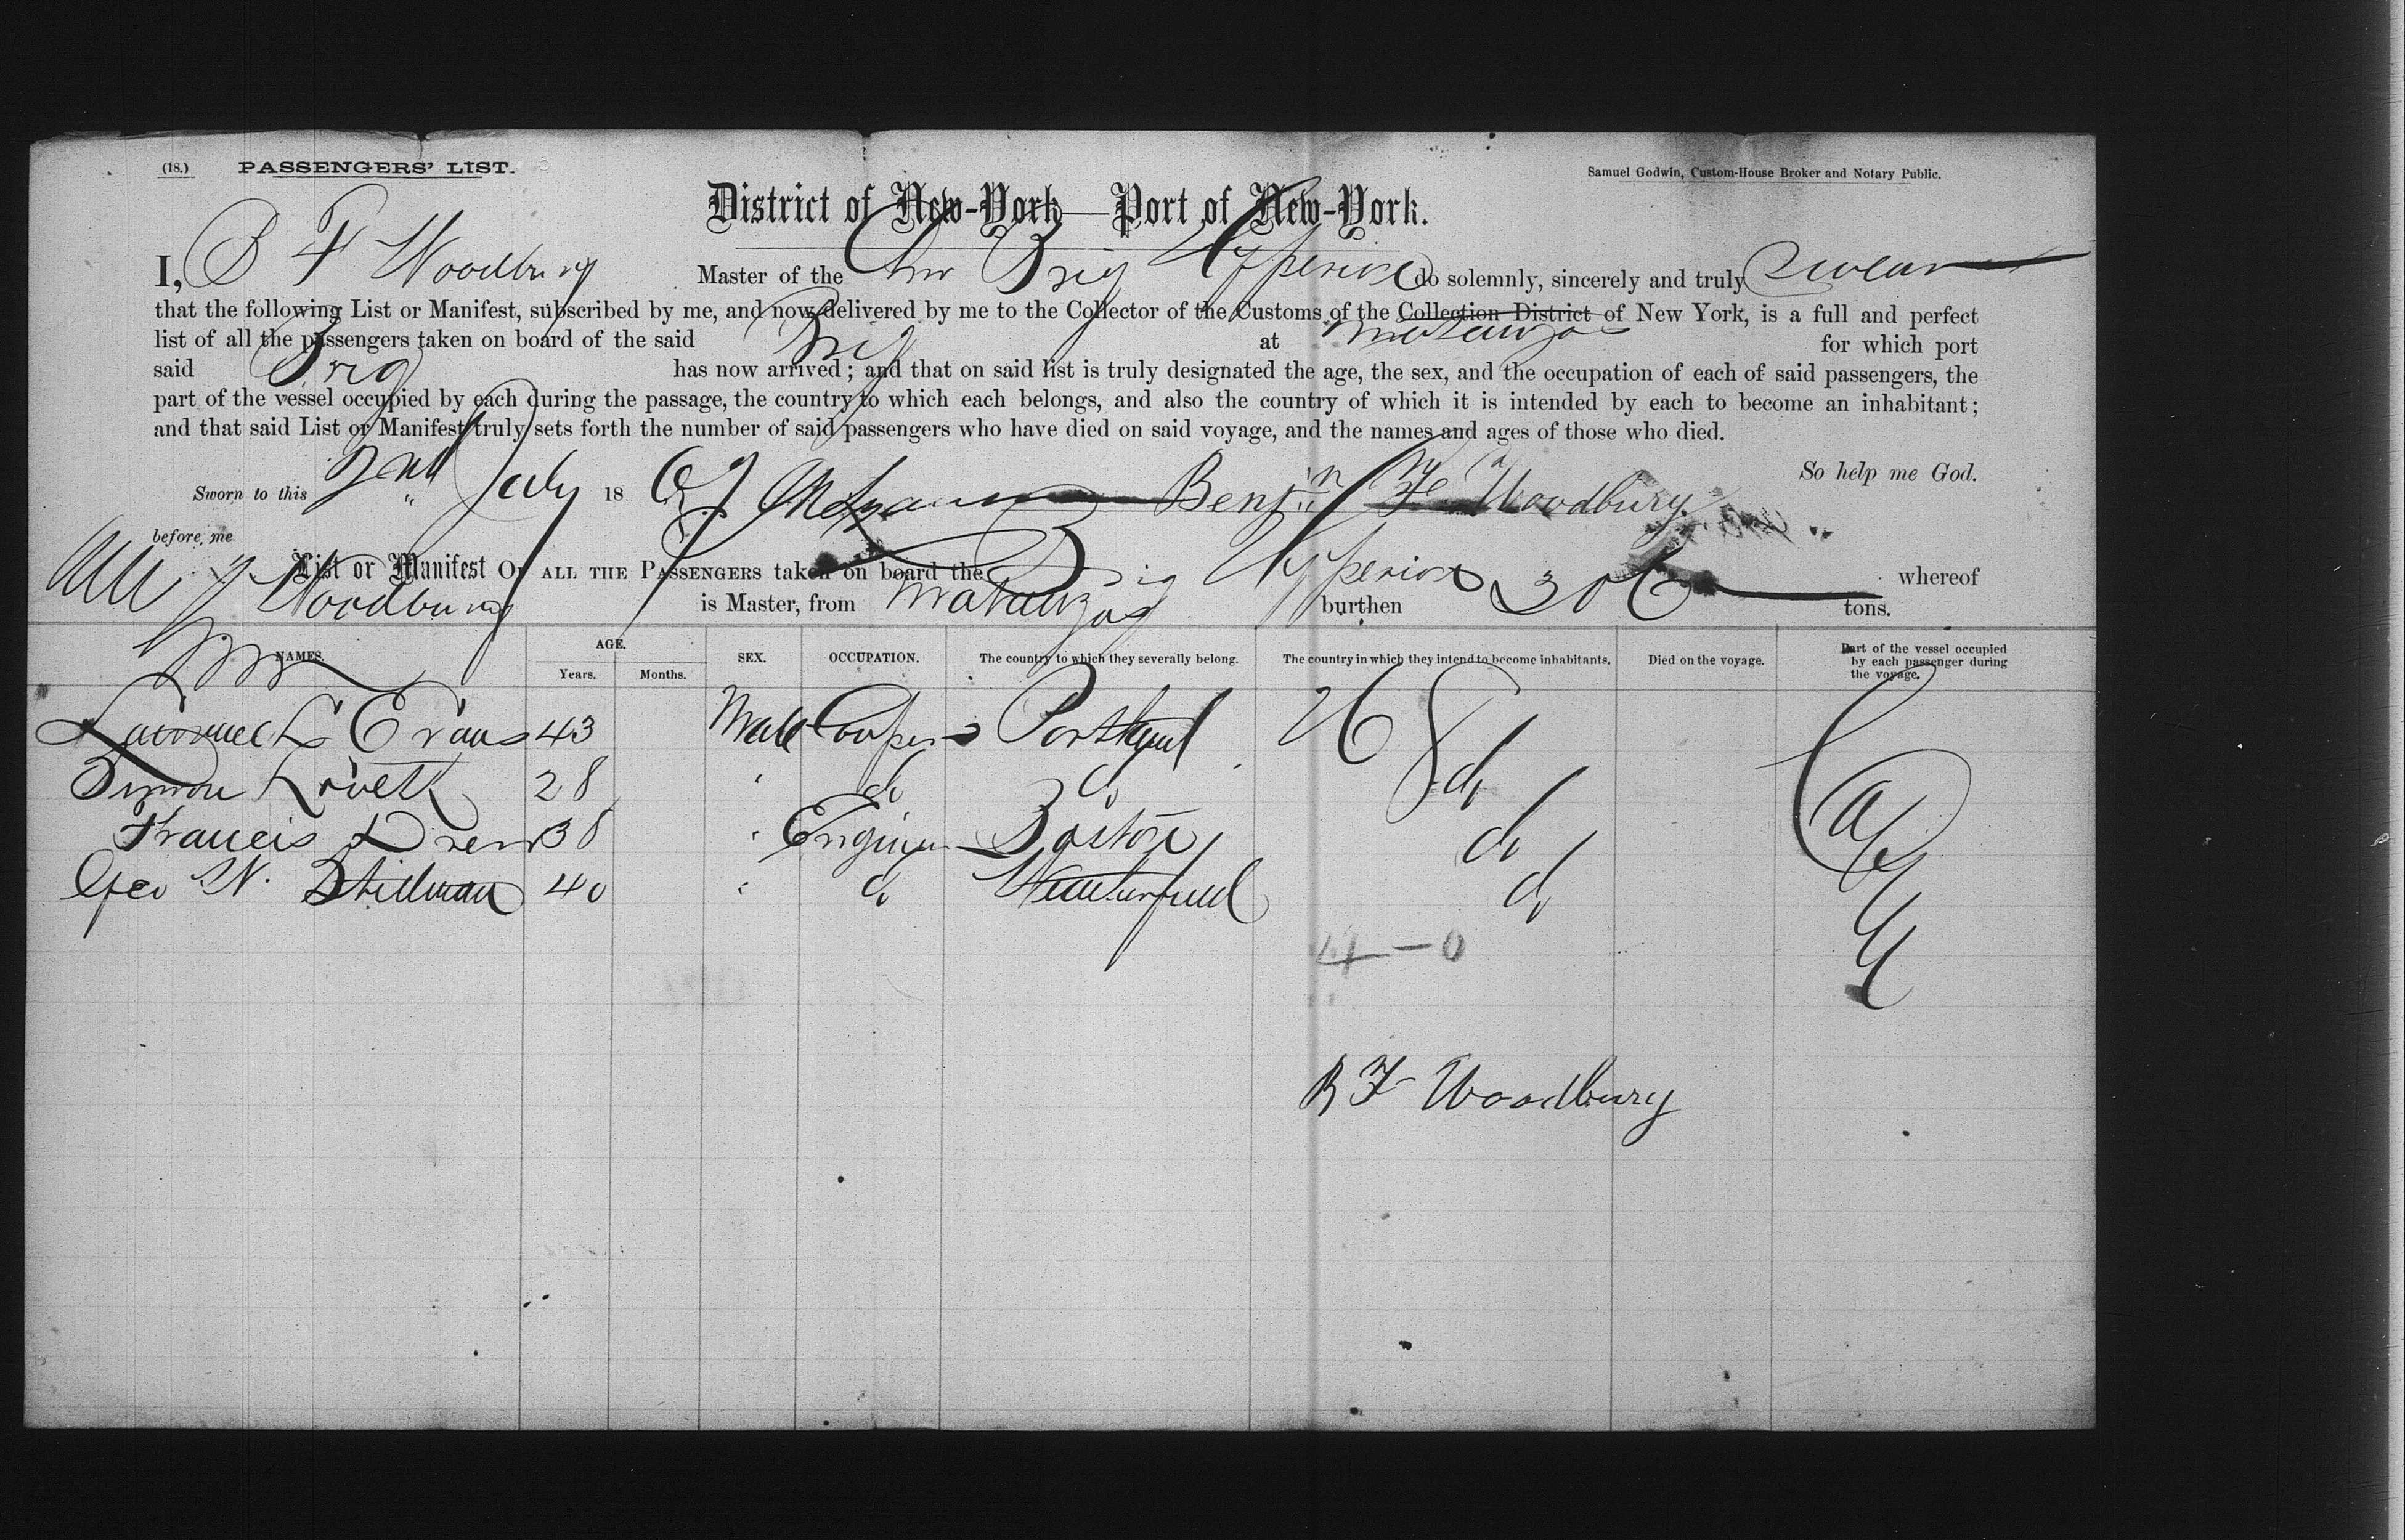 (18.) PASSENGERS' LIST.
Samuel Godwin, Custom-House Broker and Notary Public.
District of New-York—Port of New-York.
I, B F Woodbury Master of the Brig Hyperion do solemnly, sincerely and truly swear
that the following List or Manifest, subscribed by me, and now delivered by me to the Collector of the Customs of the Collection District of New York, is a full and perfect
list of all the passengers taken on board of the said Brig at Matanzas for which port
said Brig has now arrived; and that on said list is truly designated the age, the sex, and the occupation of each of said passengers, the
part of the vessel occupied by each during the passage, the country to which each belongs, and also the country of which it is intended by each to become an inhabitant;
and that said List or Manifest truly sets forth the number of said passengers who have died on said voyage, and the names and ages of those who died.
So help me God.
Sworn to this 2nd July 18 67 Benjn Fr Woodbury
before me
List or Manifest OF ALL THE PASSENGERS taken on board the Brig Hyperion whereof
Woodbury is Master, from Matanzas burthen 306 tons.
NAMES. AGE. Years. Months. SEX. OCCUPATION. The country to which they severally belong. The country in which they intend to become inhabitants. Died on the voyage. Part of the vessel occupied by each passenger during the voyage.
L Evans 43 Male Cooper Portland U S
Simon Lovett 28 " do do do
Francis Drew 38 " Engineer Boston do
Geo W. Stillman 40 " do do
4 - 0
B F Woodbury